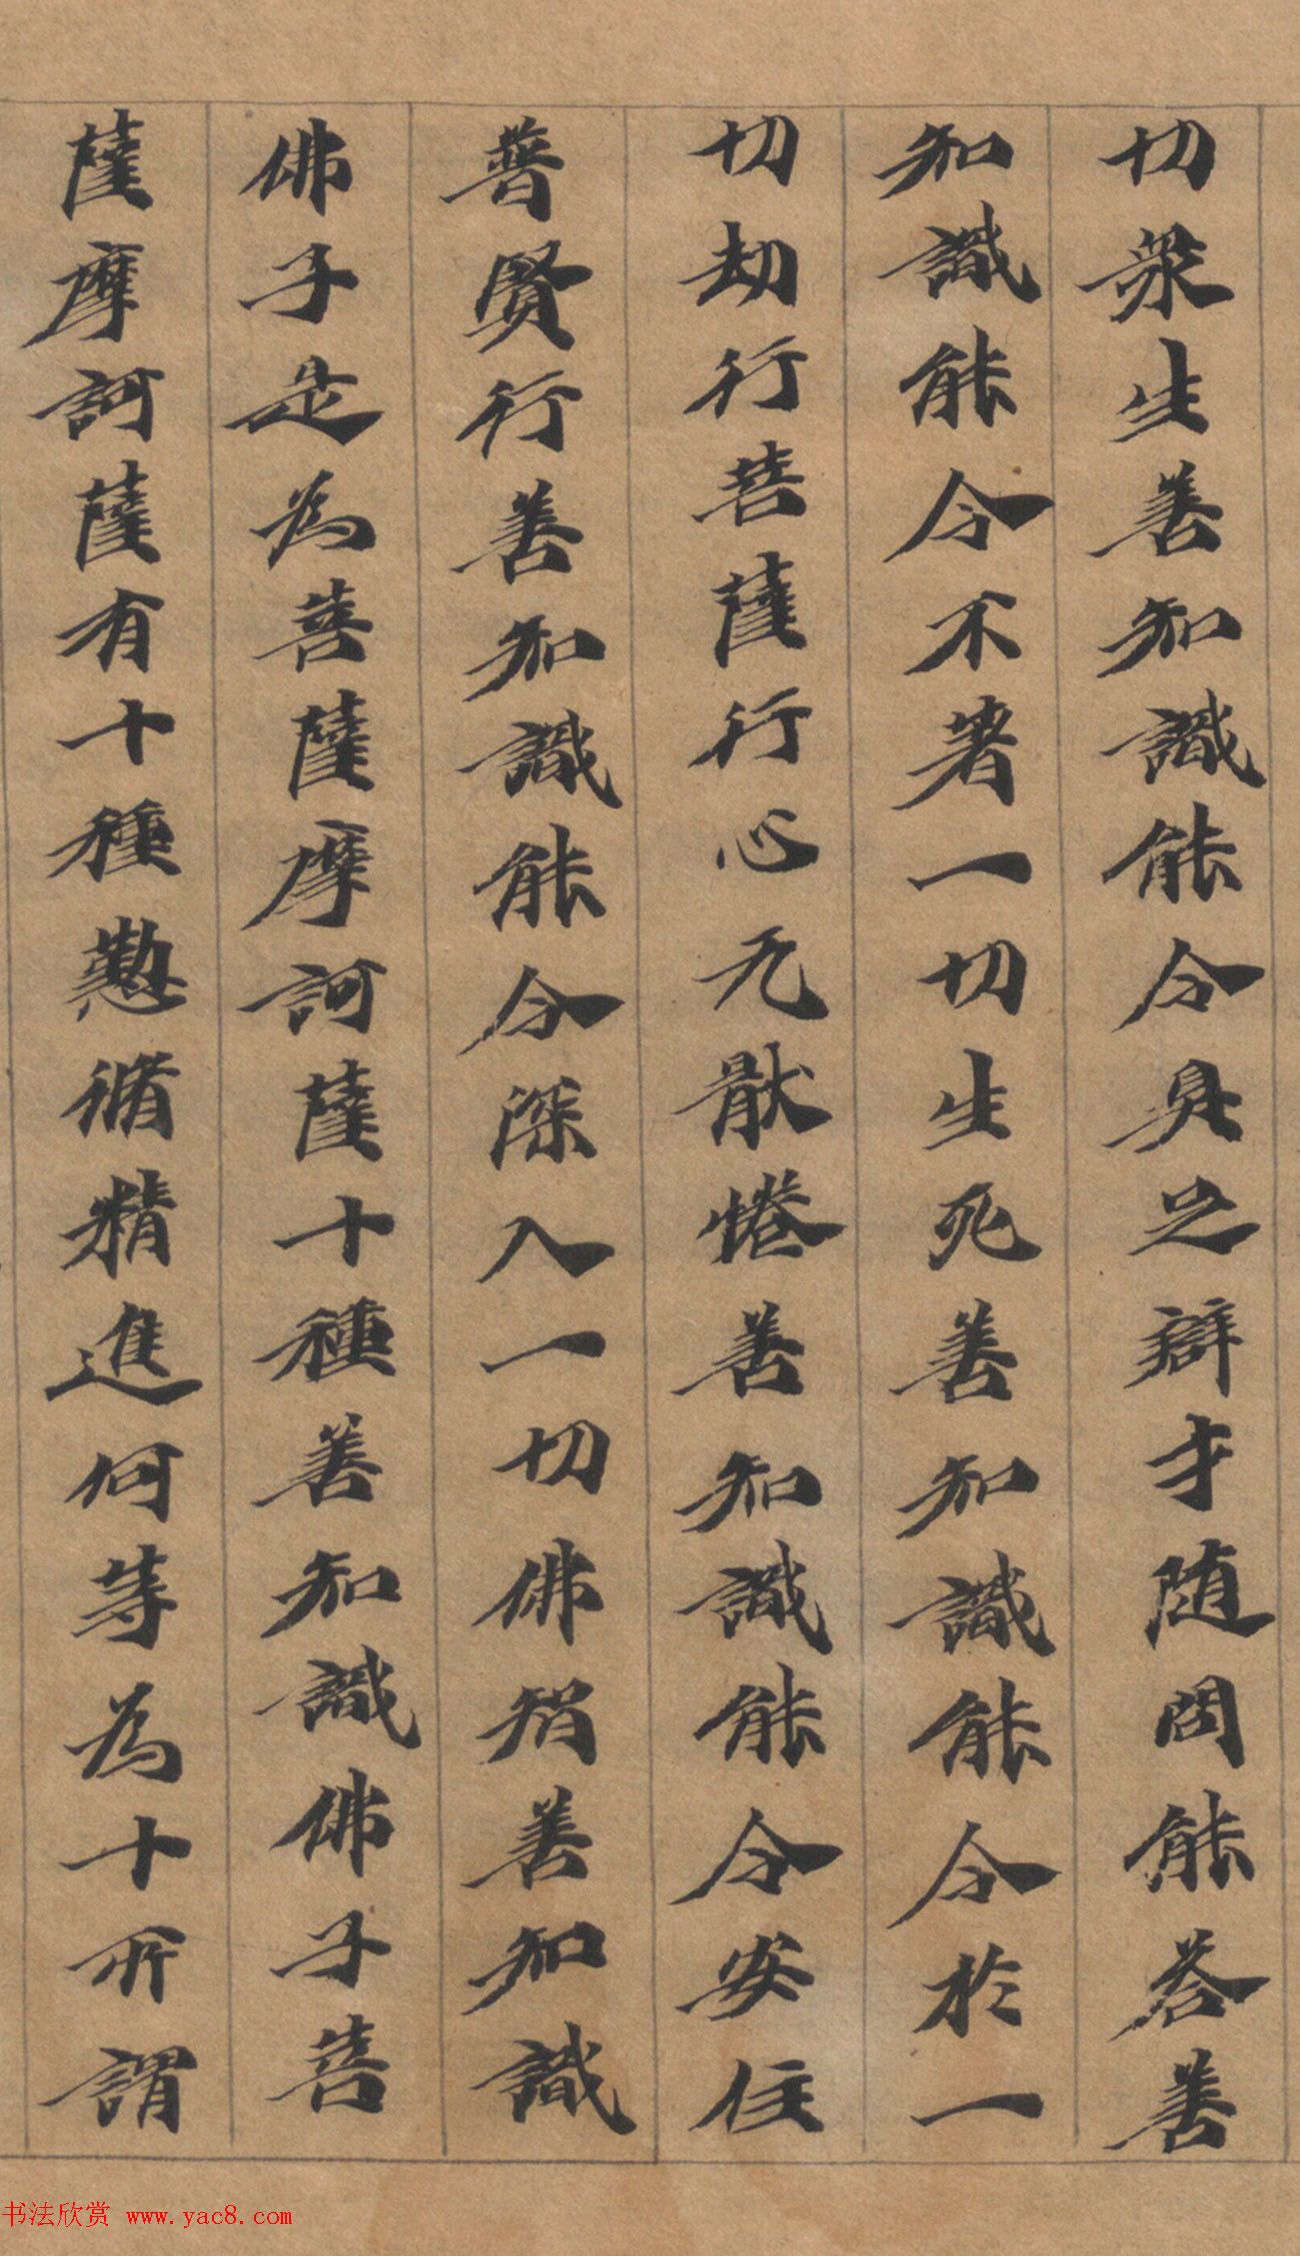 切衆生善知識能令具足辯才随問能荅善
知識能令不著一切生死善知識能令於一
切劫行菩薩行心无猒惓善知識能令安住
普賢行善知識能令深入一切佛智善知識
佛子是為菩薩摩訶薩十種善知識佛子菩
薩摩訶薩有十種懃脩精進何等為十所謂
书法欣赏 www.yac8.com